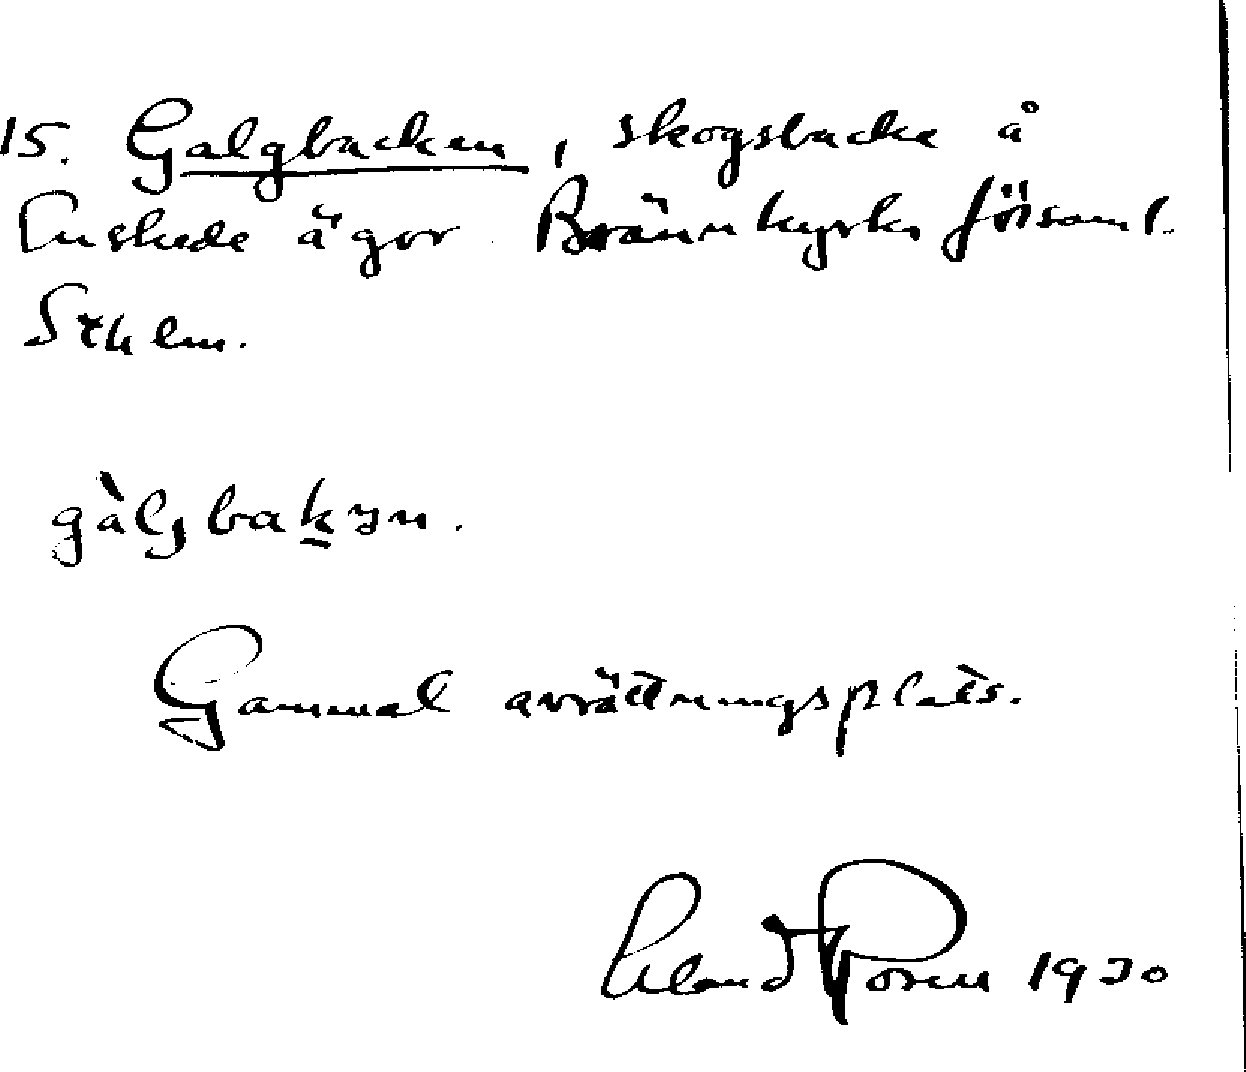 15. Galgbacken, skogsbacke å
Enskede ägor Brännkyrka församl.
Sthlm.
gàlgbakən.
Gammal avrättningsplats.
Erland Rosell 1930